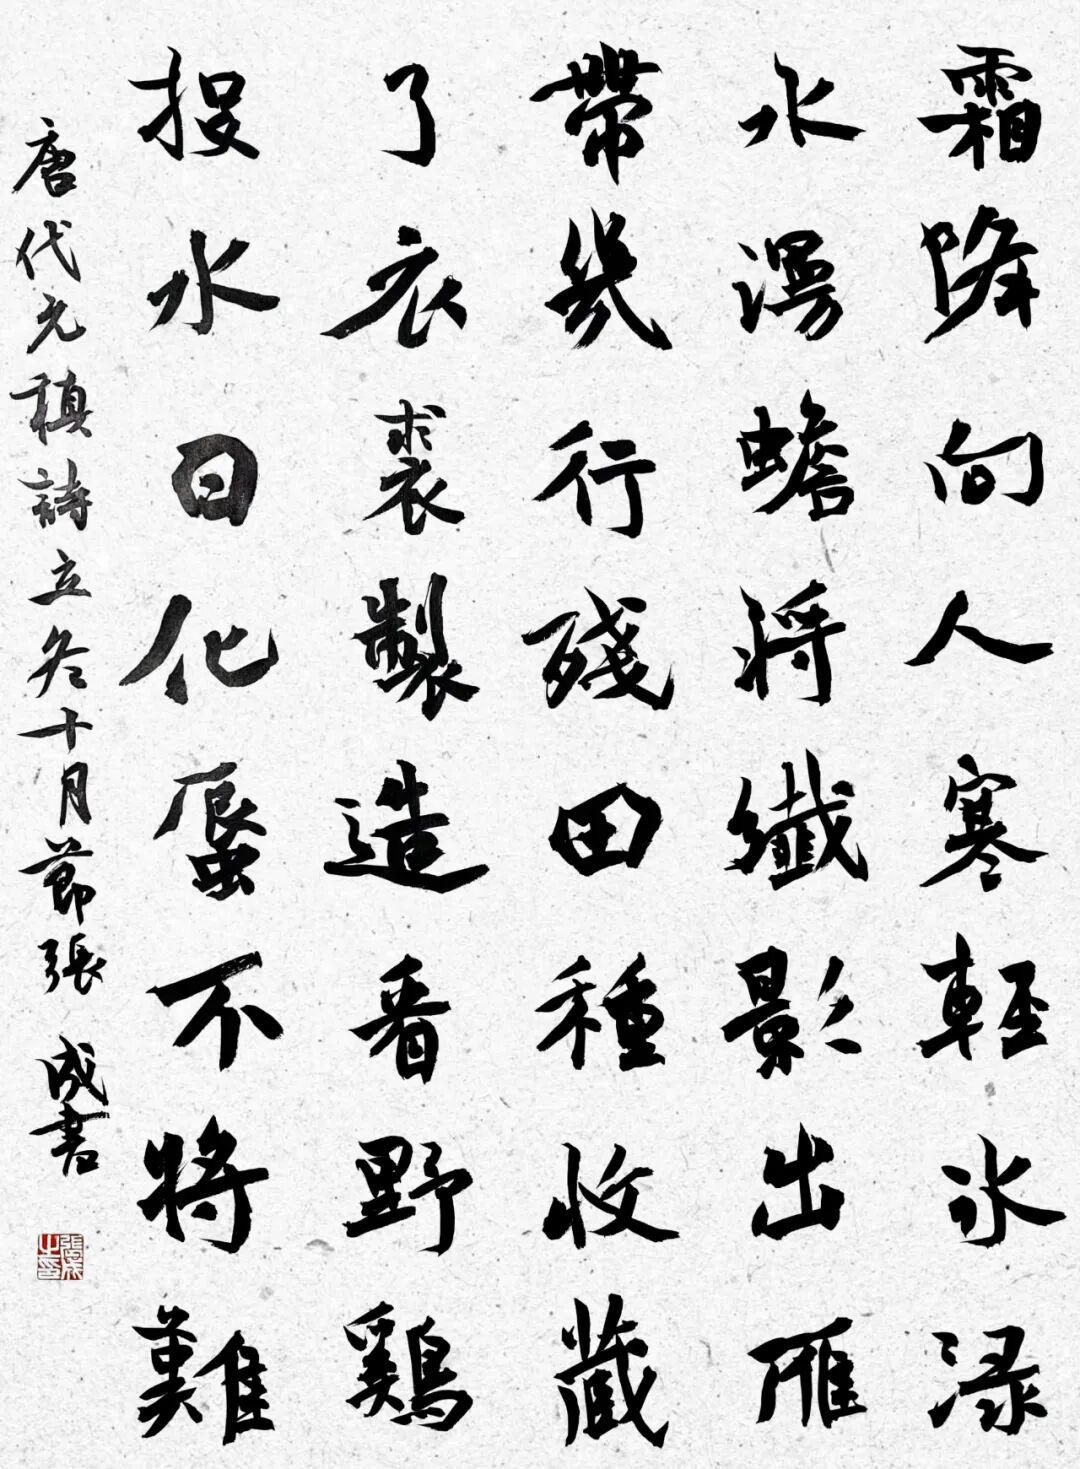 霜降向人寒輕冰渌
水漫蟾將纖影出雁
帶幾行殘田種收藏
了衣裘製造看野鷄
投水日化蜃不將難
唐代元稹詩立冬十月節張成書
張成之印